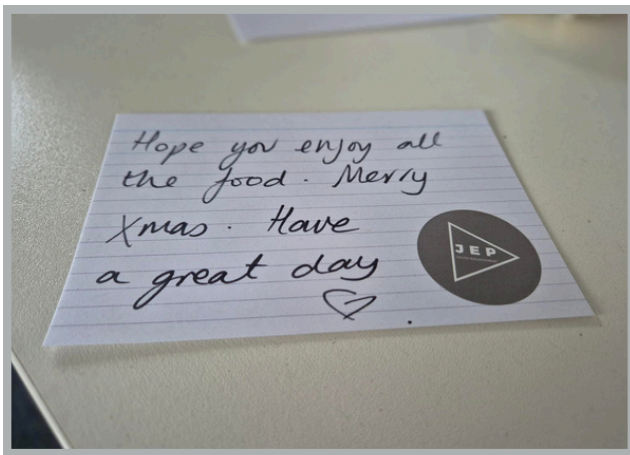 Hope you enjoy all
the food. Merry
Xmas. Have
a great day
JEP